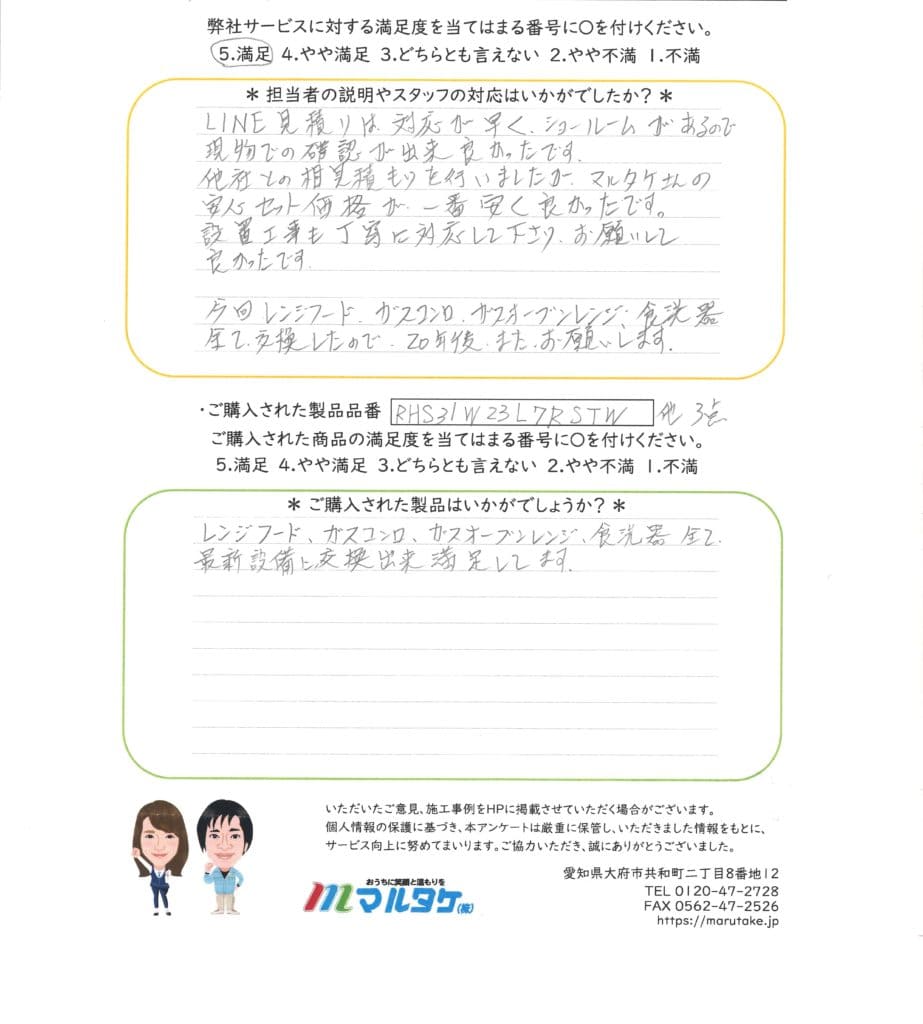 弊社サービスに対する満足度を当てはまる番号に〇を付けください。
5.満足 4.やや満足 3.どちらとも言えない 2.やや不満 1.不満
＊ 担当者の説明やスタッフの対応はいかがでしたか？ ＊
LINE見積りは対応が早く、ショールームがあるので
現物での確認が出来良かったです。
他社との相見積もりを行いましたが、マルタケさんの
安心セット価格が、一番安く良かったです。
設置工事も丁寧に対応して下さり、お願いして
良かったです。
今回レンジフード、ガスコンロ、ガスオーブンレンジ、食洗器
全て交換したので、20年後、また、お願いします。
・ご購入された製品品番 RHS31W23L7RSTW 他 3点
ご購入された商品の満足度を当てはまる番号に〇を付けください。
5.満足 4.やや満足 3.どちらとも言えない 2.やや不満 1.不満
＊ ご購入された製品はいかがでしょうか？ ＊
レンジフード、ガスコンロ、ガスオーブンレンジ、食洗器 全て、
最新設備に交換出来満足してます。
いただいたご意見、施工事例をHPに掲載させていただく場合がございます。
個人情報の保護に基づき、本アンケートは厳重に保管し、いただきました情報をもとに、
サービス向上に努めてまいります。ご協力いただき、誠にありがとうございました。
おうちに笑顔と温もりを
mマルタケ(株)
愛知県大府市共和町二丁目8番地12
TEL 0120-47-2728
FAX 0562-47-2526
https://marutake.jp